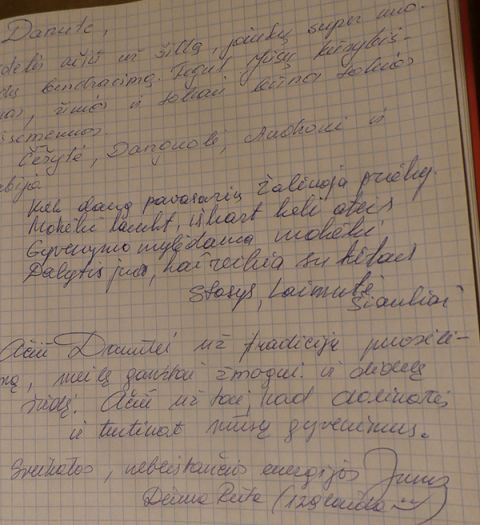 Danute,
dėlis ačiū už šiltą, jaukų super nuo-
bendravimą. Tegul Jūsų kūrybiš-
mas, žinios ir toliau būna tokios
Česytė, Danguolė, ir
Kiek daug pavasarių žaliuoja prieky.
Mokėki laukt, išhart keli
Gyvenymo mylėdama mokėki
Dalytis juo, kai reikia su kitais
Stasys, Laimutė
Šiauliai
Ačiū Danutei už tradicijų puoselė-
mą, meilę gamtai žmogui ir didelę
širdį. Ačiū už tai, kad dalinatės
ir turtinat mūsų gyvenimus.
Sveikatos, nebeišsenkančios energijos Jums
Deima Rūta